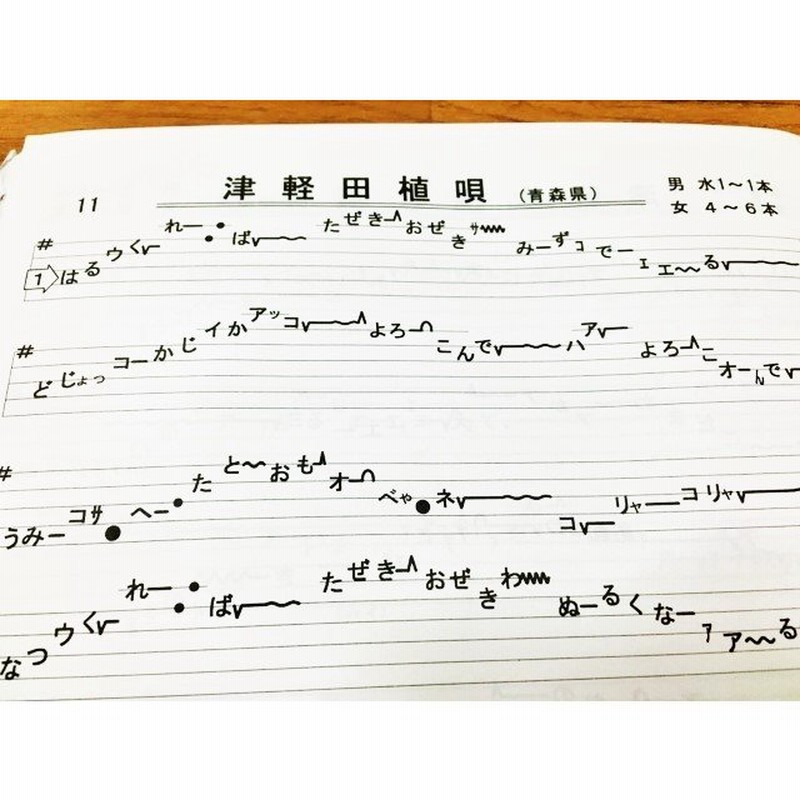 11
津軽田植唄 (青森県)
男 水1～1本
女 4～6本
# 1 はるウくれーばたぜきおぜきサみーずコでーエエ〜〜る
# どじょっコーかじイかアッコよろーこんでハアよろーこオーんで
# うみーコサへーたと〜〜おもオーべゃネコリャーコリャ
なつウくれーばたぜきおぜきわぬーるくなーァア〜〜る